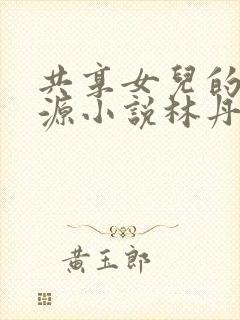 共享女兒的
源小說林丹
黃玉郎